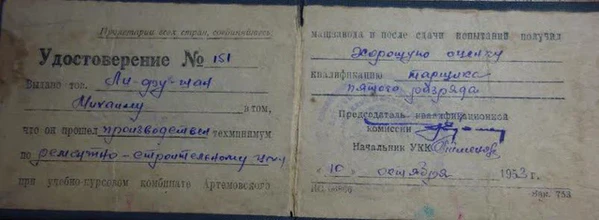 Пролетарии всех стран, соединяйтесь
Удостоверение № 151
Выдано тов. Ли-фу-шан
Михаилу в том,
что он прошел производствен техминимум
по ремонтно-строительному цеху
при учебно-курсовом комбинате Артемовского
машзавода и после сдачи испытаний получил
Хорошую оценку
квалификацию
пятого разряда
Председатель квалификационной
комиссии
Начальник УКК
"10" октября 1953 г.
Зак. 753